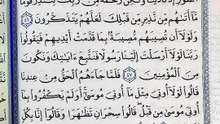 مَّآ أَتَىٰهُم مِّن نَّذِيرٍ مِّن قَبْلِكَ لَعَلَّهُمْ يَتَذَكَّرُونَ ٤٦
وَلَوْلَآ أَن تُصِيبَهُم مُّصِيبَةٌۢ بِمَا قَدَّمَتْ أَيْدِيهِمْ فَيَقُولُوا۟
رَبَّنَا لَوْلَآ أَرْسَلْتَ إِلَيْنَا رَسُولًا فَنَتَّبِعَ ءَايَٰتِكَ وَنَكُونَ
مِنَ ٱلْمُؤْمِنِينَ ٤٧ فَلَمَّا جَآءَهُمُ ٱلْحَقُّ مِنْ عِندِنَا
قَالُوا۟ لَوْلَآ أُوتِىَ مِثْلَ مَآ أُوتِىَ مُوسَىٰٓ أَوَلَمْ يَكْفُرُوا۟ بِمَآ
أُوتِىَ مُوسَىٰ مِن قَبْلُ قَالُوا۟ سِحْرَانِ تَظَٰهَرَا وَقَالُوٓا۟ إِنَّا بِكُلٍّ